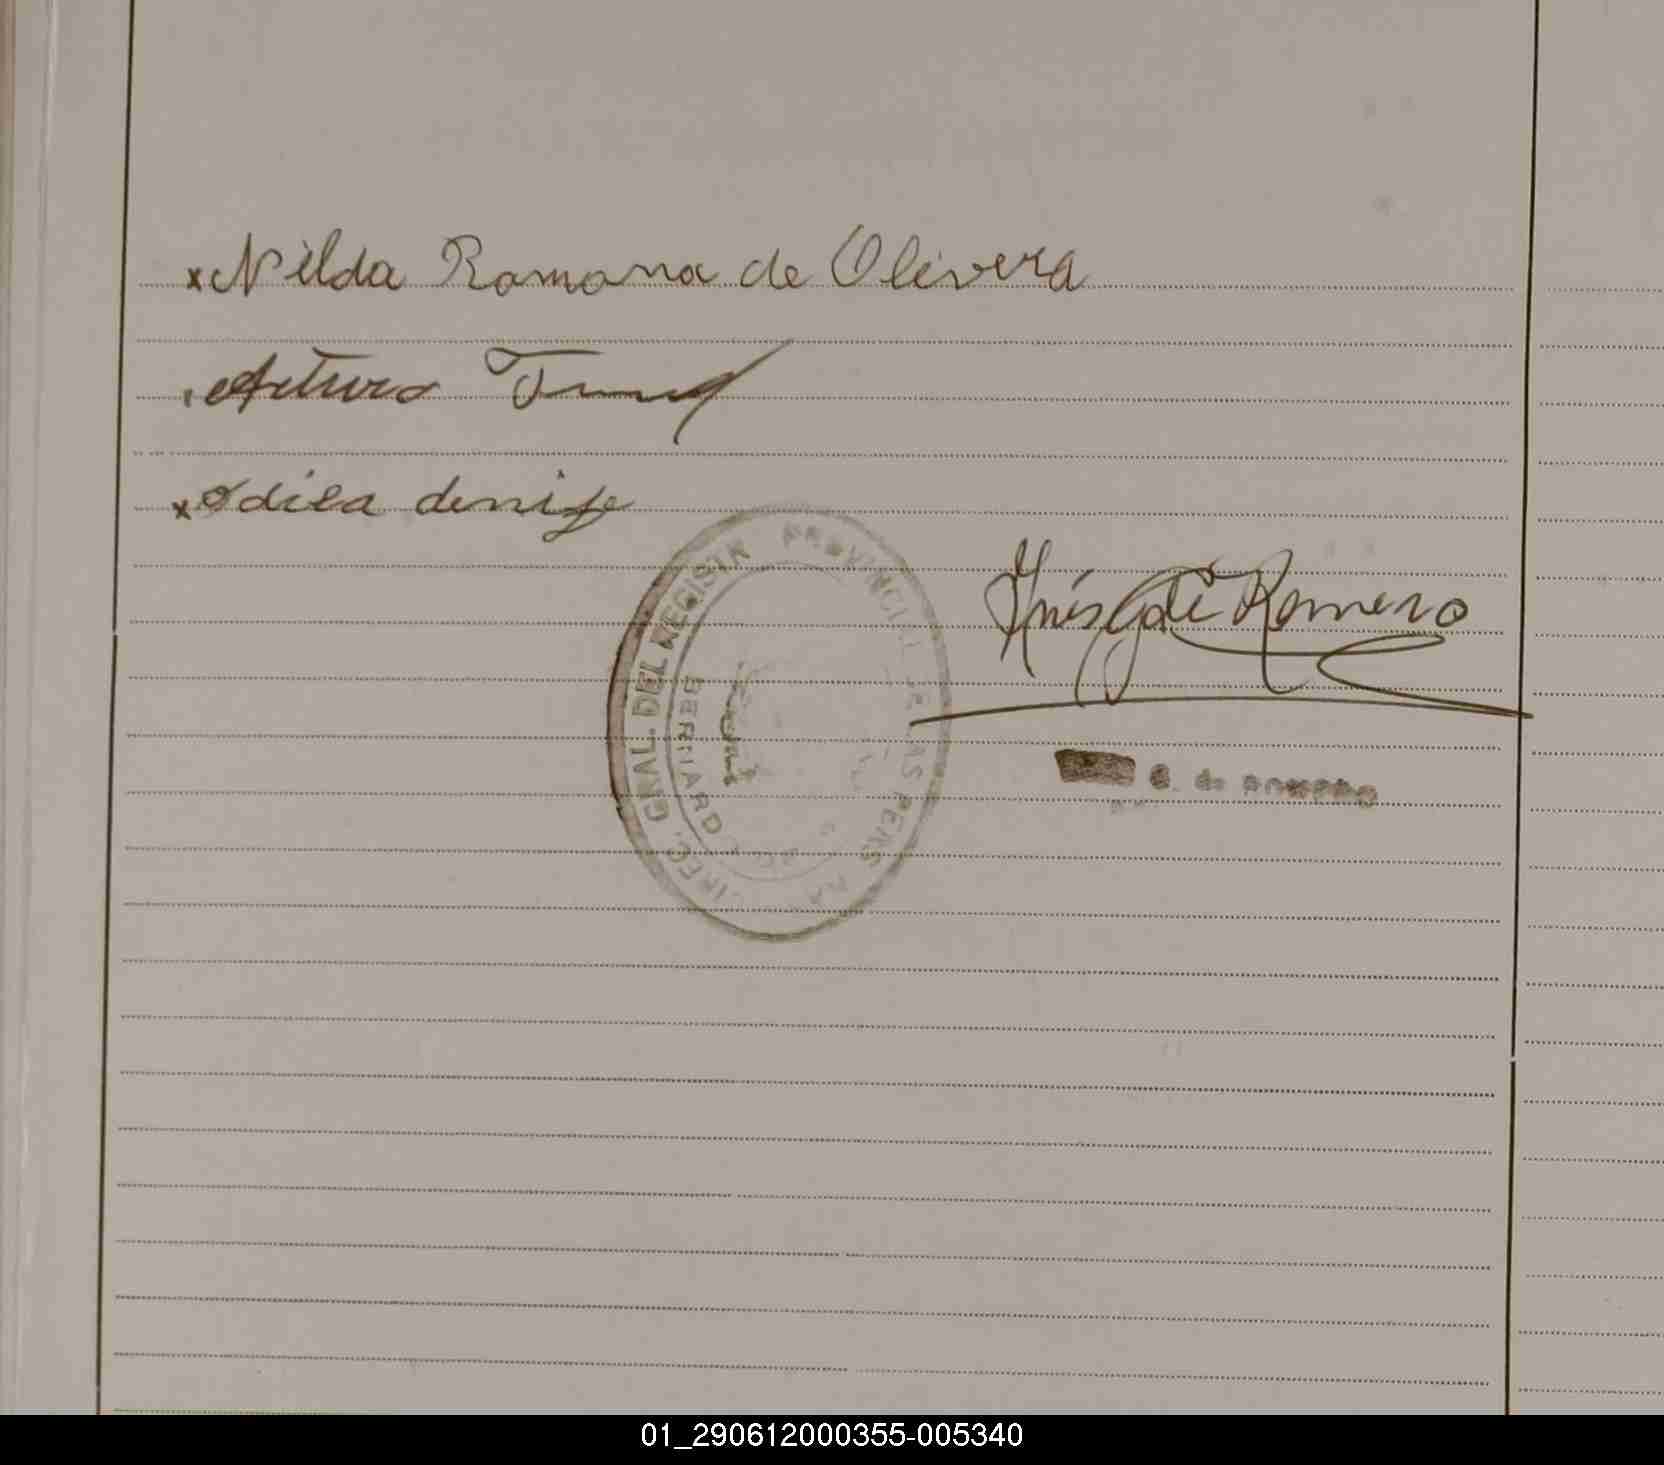 x Nilda Romana de Olivera
Arturo
x Odila
DIREC. GRAL. DEL REGISTR PROVINCIAL DE LAS PERS
BERNARDO
Inés G de Romero
G. de ROMERO
01_290612000355-005340